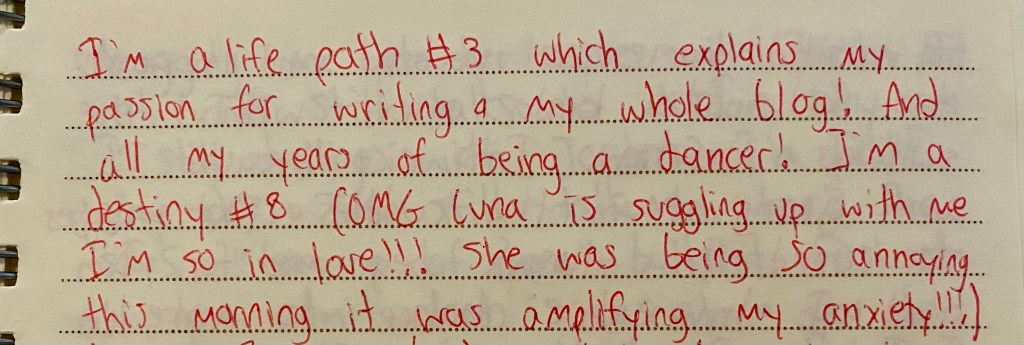 I'm a life path #3 which explains my
passion for writing & my whole blog! And
all my years of being a dancer! I'm a
destiny #8 (OMG Luna is suggling up with me
I'm so in love!!! She was being so annoying
this morning it was amplifying my anxiety!!!)